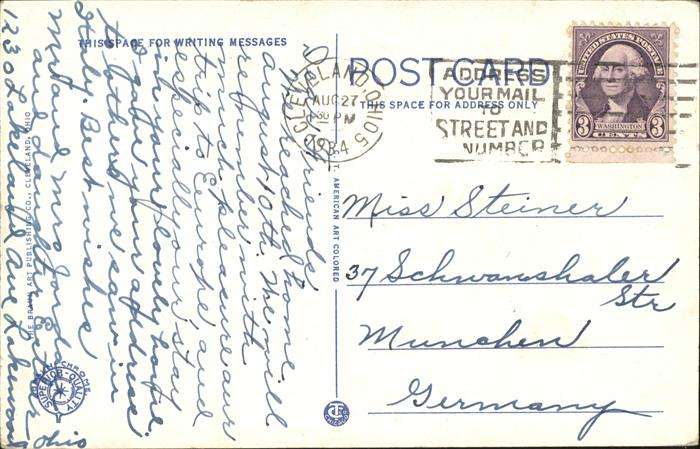 THIS SPACE FOR WRITING MESSAGES
Dear Friends
We reached home
august 10th. We will
remember with
much pleasure our
trip to Europe and
especially our stay
in your lovely home.
gave your address
to others we saw in
Italy. Best wishes
Mr and Mrs Jordan
and Esther
1230 Lakeland Ave Lakewood
Ohio
THE BRAUN ART PUBLISHING CO., CLEVELAND, OHIO
SUPERIOR-QUALITY
AMERICAN ART COLORED
POST CARD
THIS SPACE FOR ADDRESS ONLY
CLEVELAND, OHIO 5
AUG 27
30 PM
1934
ADDRESS
YOUR MAIL
TO
STREET AND
NUMBER
UNITED STATES POSTAGE
3 WASHINGTON 3
CENTS
Miss Steiner
37 Schwanthaler
Str
Munchen
Germany